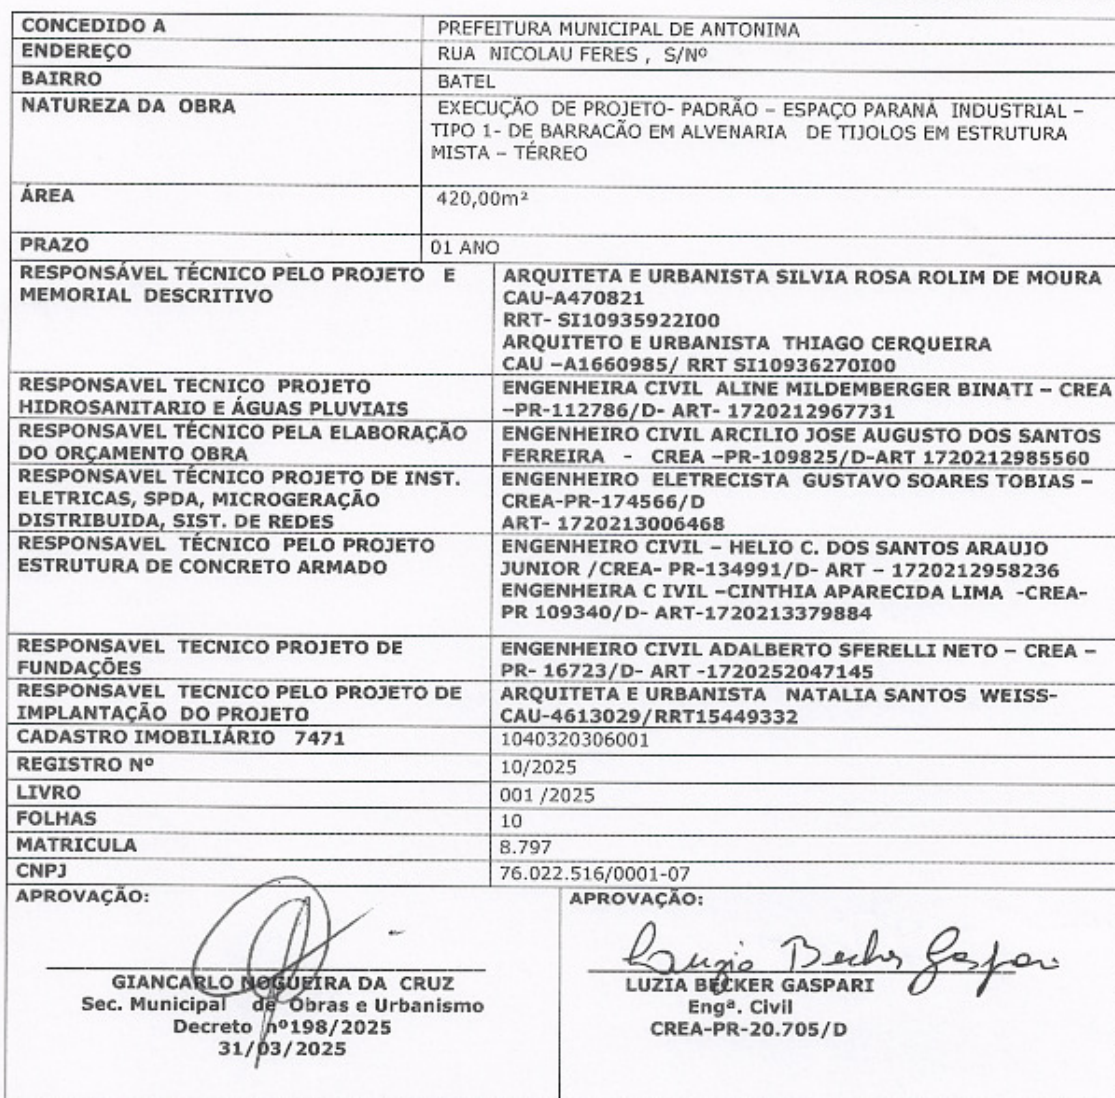 CONCEDIDO A PREFEITURA MUNICIPAL DE ANTONINA
ENDEREÇO RUA NICOLAU FERES , S/Nº
BAIRRO BATEL
NATUREZA DA OBRA EXECUÇÃO DE PROJETO- PADRÃO – ESPAÇO PARANÁ INDUSTRIAL –
TIPO 1- DE BARRACÃO EM ALVENARIA DE TIJOLOS EM ESTRUTURA
MISTA – TÉRREO
ÁREA 420,00m²
PRAZO 01 ANO
RESPONSÁVEL TÉCNICO PELO PROJETO E
MEMORIAL DESCRITIVO
ARQUITETA E URBANISTA SILVIA ROSA ROLIM DE MOURA
CAU-A470821
RRT- SI10935922I00
ARQUITETO E URBANISTA THIAGO CERQUEIRA
CAU –A1660985/ RRT SI10936270I00
RESPONSAVEL TECNICO PROJETO
HIDROSANITARIO E ÁGUAS PLUVIAIS
ENGENHEIRA CIVIL ALINE MILDEMBERGER BINATI – CREA
–PR-112786/D- ART- 1720212967731
RESPONSAVEL TÉCNICO PELA ELABORAÇÃO
DO ORÇAMENTO OBRA
ENGENHEIRO CIVIL ARCILIO JOSE AUGUSTO DOS SANTOS
FERREIRA - CREA –PR-109825/D-ART 1720212985560
RESPONSAVEL TÉCNICO PROJETO DE INST.
ELETRICAS, SPDA, MICROGERAÇÃO
DISTRIBUIDA, SIST. DE REDES
ENGENHEIRO ELETRECISTA GUSTAVO SOARES TOBIAS –
CREA-PR-174566/D
ART- 1720213006468
RESPONSAVEL TÉCNICO PELO PROJETO
ESTRUTURA DE CONCRETO ARMADO
ENGENHEIRO CIVIL – HELIO C. DOS SANTOS ARAUJO
JUNIOR /CREA- PR-134991/D- ART – 1720212958236
ENGENHEIRA C IVIL –CINTHIA APARECIDA LIMA -CREA-
PR 109340/D- ART-1720213379884
RESPONSAVEL TECNICO PROJETO DE
FUNDAÇÕES
ENGENHEIRO CIVIL ADALBERTO SFERELLI NETO – CREA –
PR- 16723/D- ART -1720252047145
RESPONSAVEL TECNICO PELO PROJETO DE
IMPLANTAÇÃO DO PROJETO
ARQUITETA E URBANISTA NATALIA SANTOS WEISS-
CAU-4613029/RRT15449332
CADASTRO IMOBILIÁRIO 7471 1040320306001
REGISTRO Nº 10/2025
LIVRO 001 /2025
FOLHAS 10
MATRICULA 8.797
CNPJ 76.022.516/0001-07
APROVAÇÃO:
GIANCARLO NOGUEIRA DA CRUZ
Sec. Municipal de Obras e Urbanismo
Decreto nº198/2025
31/03/2025
APROVAÇÃO:
Luzia Becker Gaspari
LUZIA BECKER GASPARI
Engª. Civil
CREA-PR-20.705/D